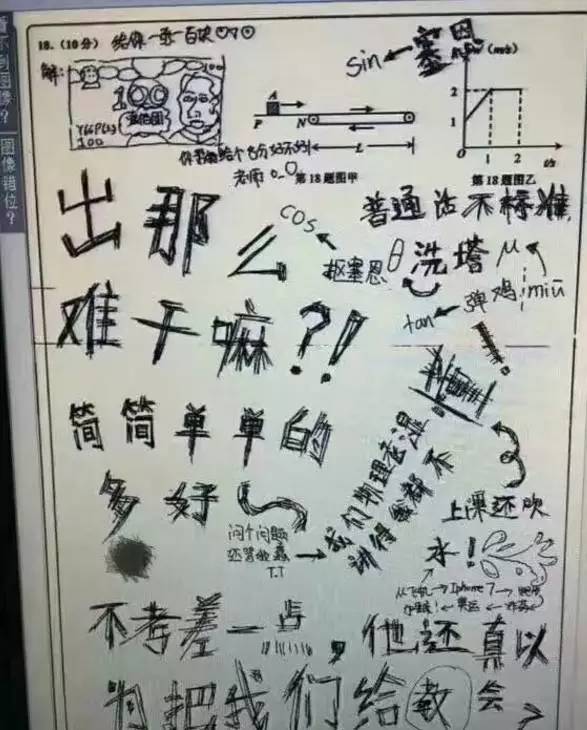 看不到图像?
图像错位?
18.(10分) 给你一张一百块
解:
100
YGGP(53)
100
你看我给个6分好不好
老师 o_O
A
P
N
L
第18题图甲
sin ← 塞恩
(m/s)
2
1
0
1
2
t/s
第18题图乙
出那么
难干嘛?!
简简单单的
多好
cos
抠塞恩
普通话不标准,
θ 洗塔 μ
tan ← 弹鸡 miū
!
我们物理老湿
讲得
都不
上课还吹
水!
问个问题
还骂我蠢
T.T
从飞机 → Iphone 7 →
奥运 ←
不考差一点,他还真以
为把我们给教会